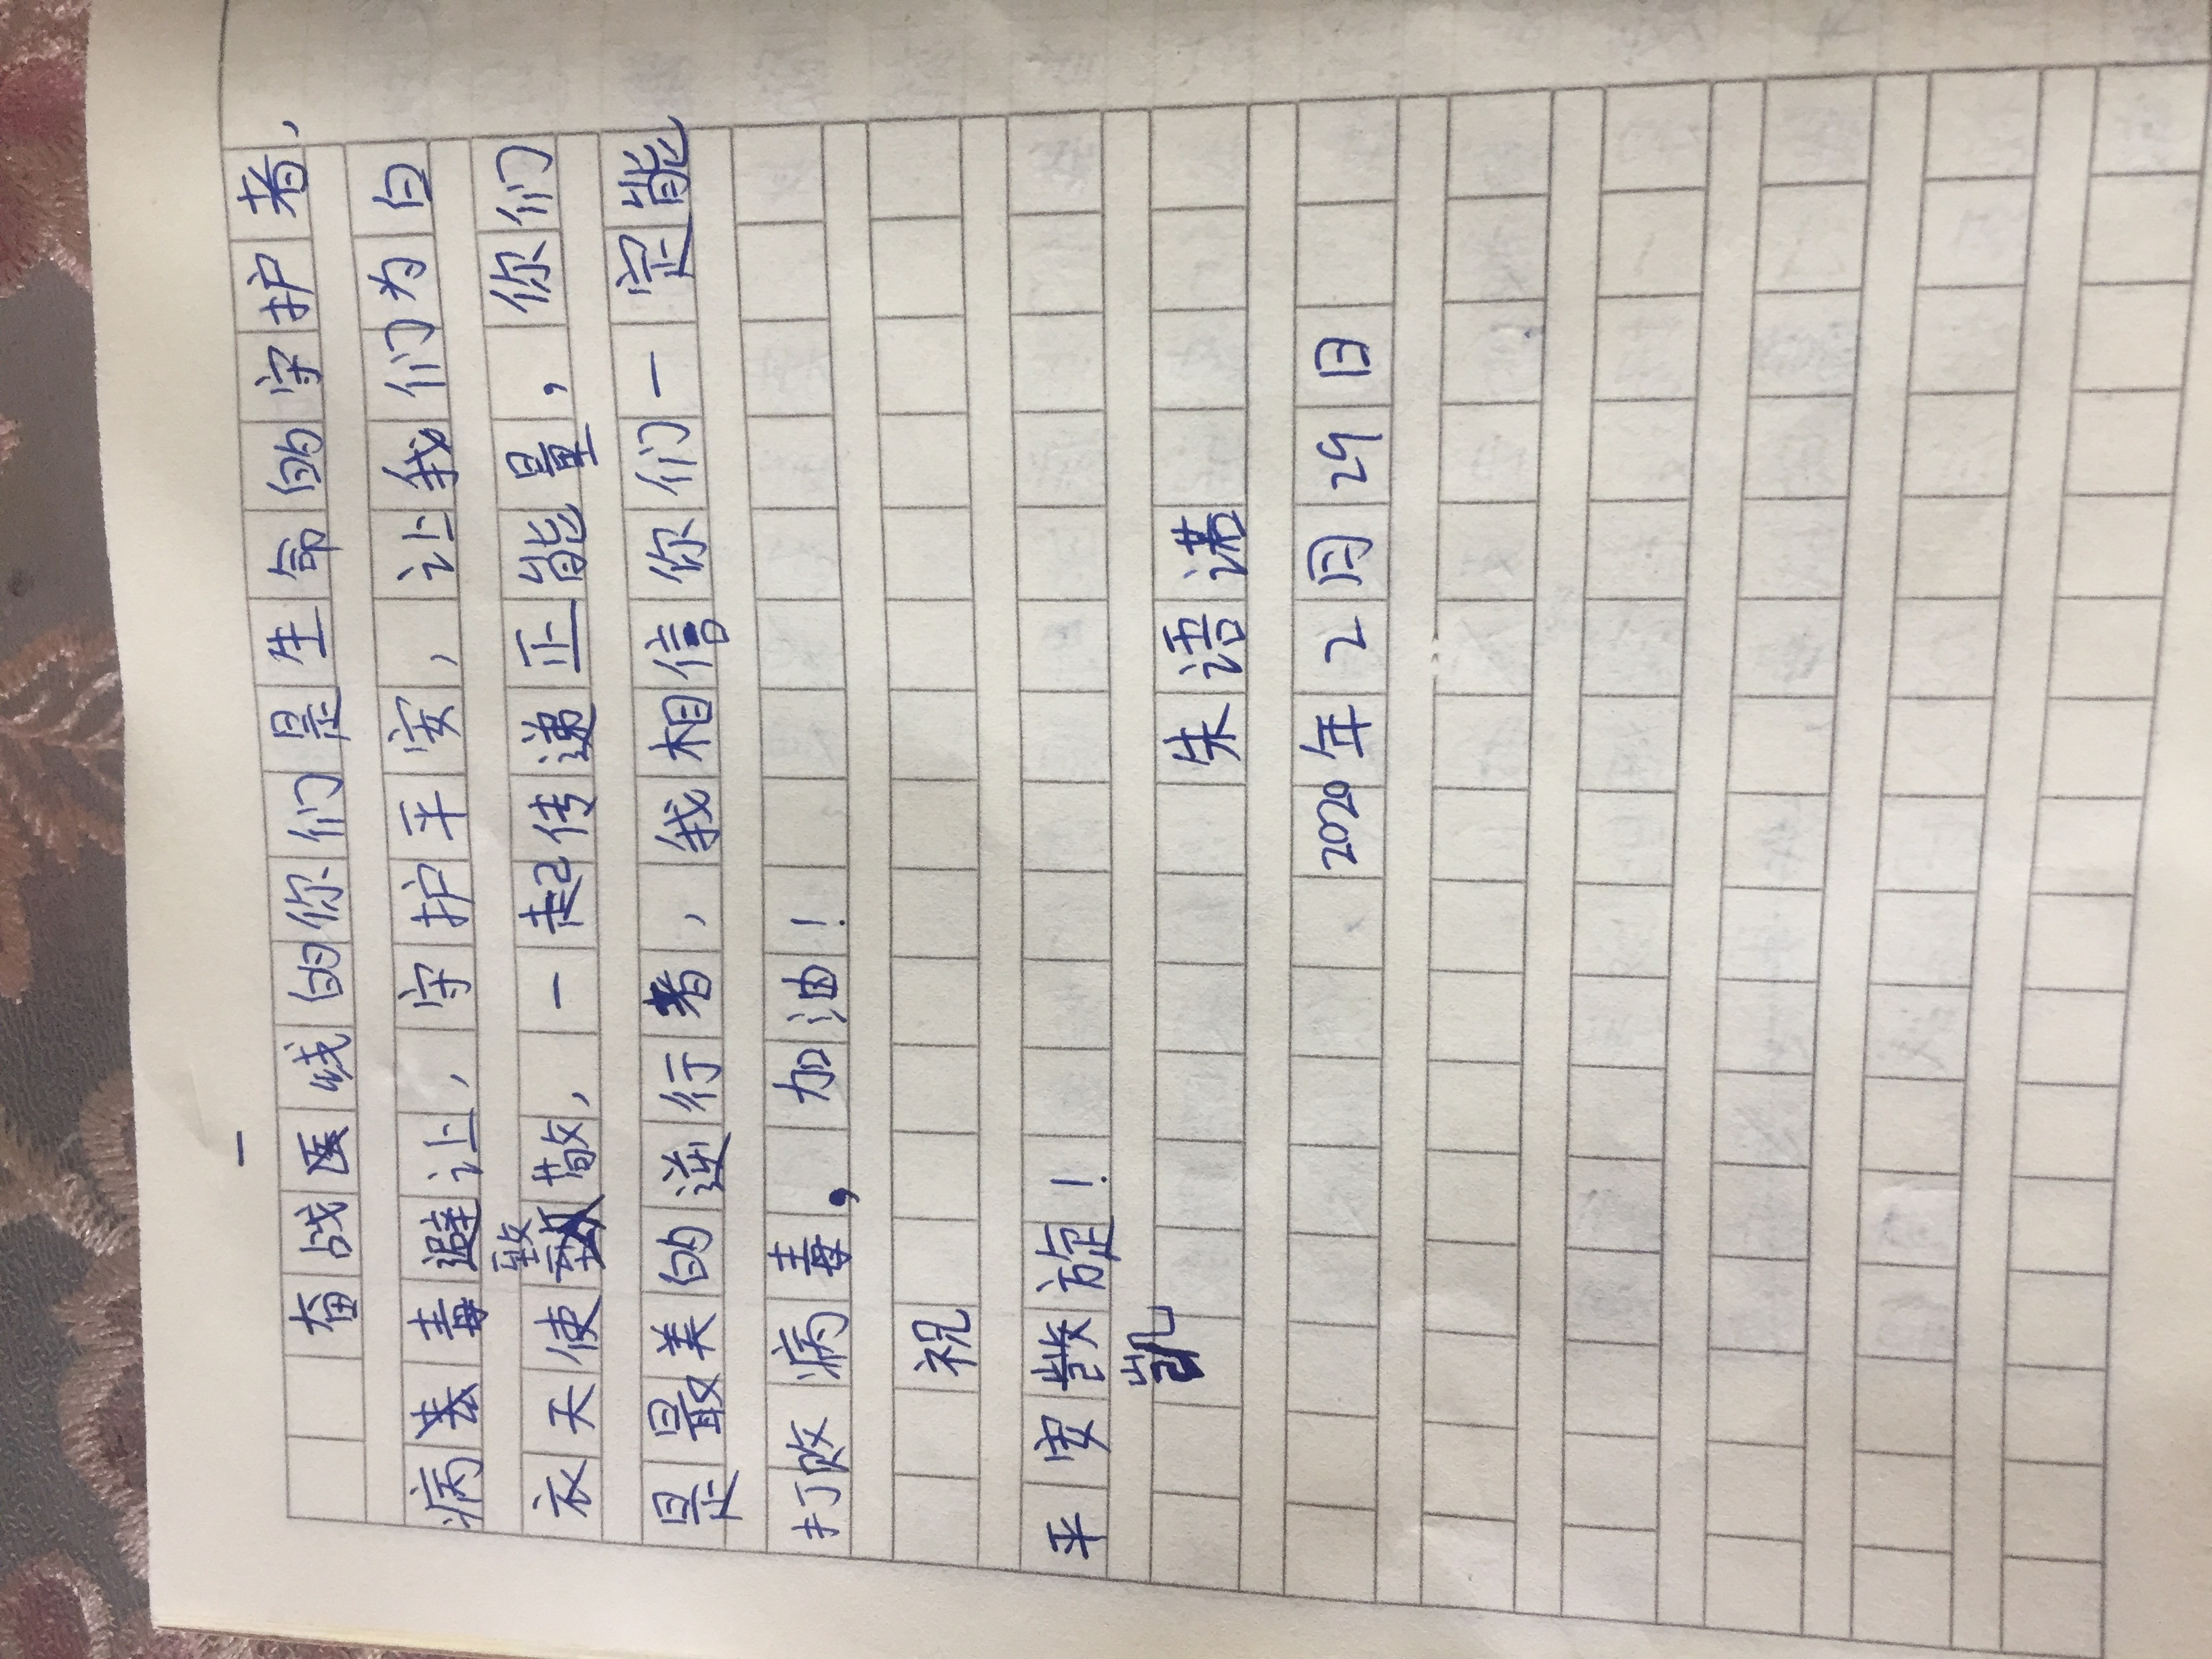 一
奋战医线的你们是生命的守护者,
病袭毒避让,守护平安,让我们为白
致
衣天使敬,一起传递正能量,你们
是最美的逆行者,我相信你们一定能
打败病毒,加油!
祝
平安旋!
凯
朱语诺
2020年2月29日